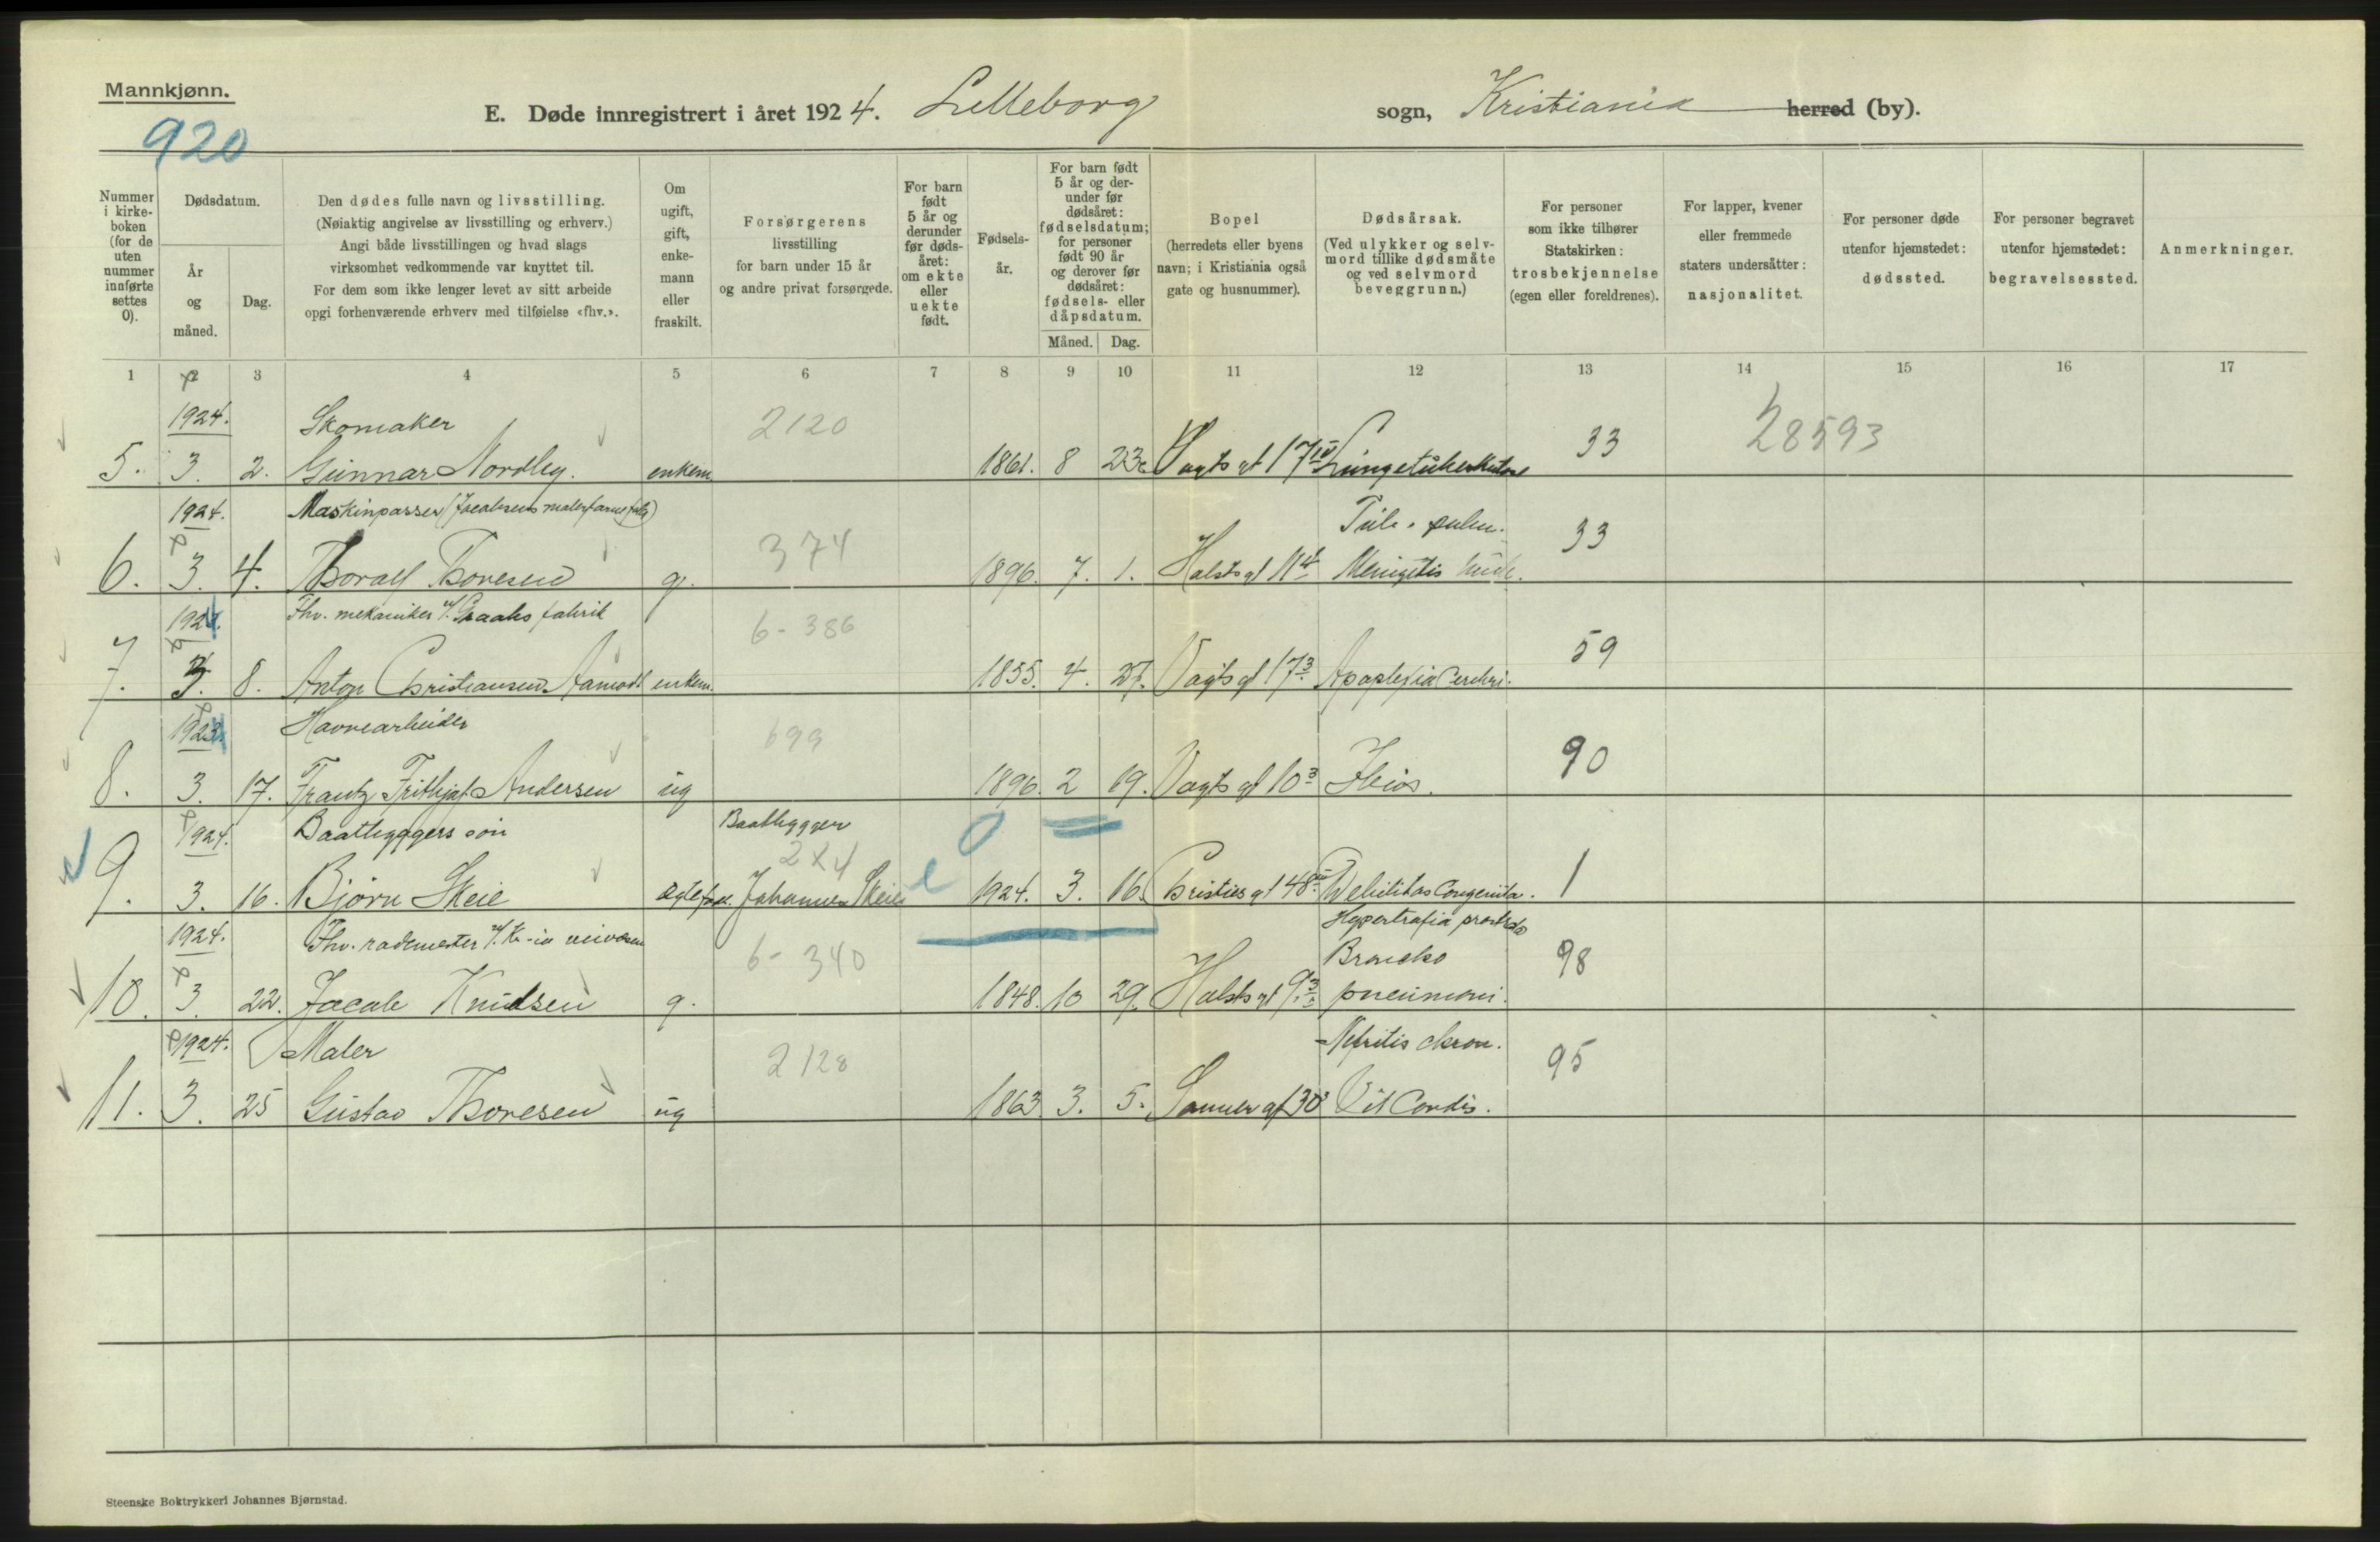 Mannkjønn.
920
E. Døde innregistrert i året 1924. Lilleborg sogn, Kristiania herred (by).
Nummer i kirke-boken (for de uten nummer innførte settes 0).
Dødsdatum.
År og måned.
Dag.
Den dødes fulle navn og livsstilling.
(Nøiaktig angivelse av livsstilling og erhverv.)
Angi både livsstillingen og hvad slags
virksomhet vedkommende var knyttet til.
For dem som ikke lenger levet av sitt arbeide
opgi forhenværende erhverv med tilføielse «fhv.».
Om ugift, gift, enke-mann eller fraskilt.
Forsørgerens
livsstilling
for barn under 15 år
og andre privat forsørgede.
For barn født 5 år og derunder før døds-året: om ekte eller uekte født.
Fødsels-år.
For barn født 5 år og der-under før dødsåret: fødselsdatum; for personer født 90 år og derover før dødsåret: fødsels- eller dåpsdatum.
Måned. Dag.
Bopel
(herredets eller byens
navn; i Kristiania også
gate og husnummer).
Dødsårsak.
(Ved ulykker og selv-
mord tillike dødsmåte
og ved selvmord
beveggrunn.)
For personer
som ikke tilhører
Statskirken:
trosbekjennelse
(egen eller foreldrenes).
For lapper, kvener
eller fremmede
staters undersåtter:
nasjonalitet.
For personer døde
utenfor hjemstedet:
dødssted.
For personer begravet
utenfor hjemstedet:
begravelsessted.
Anmerkninger.
1 2 3 4 5 6 7 8 9 10 11 12 13 14 15 16 17
1924. Skomaker 2120 33 28593
5. 3. 2. Gunnar Nordby. enkem 1861. 8 23. Vogts gt 17 IV Lungetuberkulose
1924. Maskinpasser (Jacobsens malerfarvefabr) 374 Tub. pulm. 33
6. 3. 4. Thoralf Thoresen g. 1896. 7. 1. Holsts gt 11 4 Meningitis tub.
1924. Fhv. mekaniker v/. Graahs fabrik 6-386 59
7. 3. 8. Anton Christiansen Aamodt enkem. 1855. 4. 27. Vogts gt 17 3 Apoplexia Cerebri.
1924 Havnearbeider 699 90
8. 3. 17. Frantz Frithjof Andersen ug 1896. 2 19. Vogts gt 10 3 Ileus.
1924. Baatbyggers søn Baatbygger 0 2x4
9. 3. 16. Bjørn Skeie Johannes Skeie e 1924. 3. 16. Christies gt 48 III Debilitas Congenita. 1
1924. Fhv. rodemester v/. Kr-ia veivesen 6-340 Hypertrofia prostata 98
Broncho
10. 3. 22. Jacob Knudsen g. 1848. 10 29. Holsts gt 9. 3 pneumoni.
1924. Maler 2128 Nefritis chron. 95
11. 3. 25 Gustav Thoresen ug 1863. 3. 5. gt 30 3 Vit Cordis.
Steenske Boktrykkeri Johannes Bjørnstad.